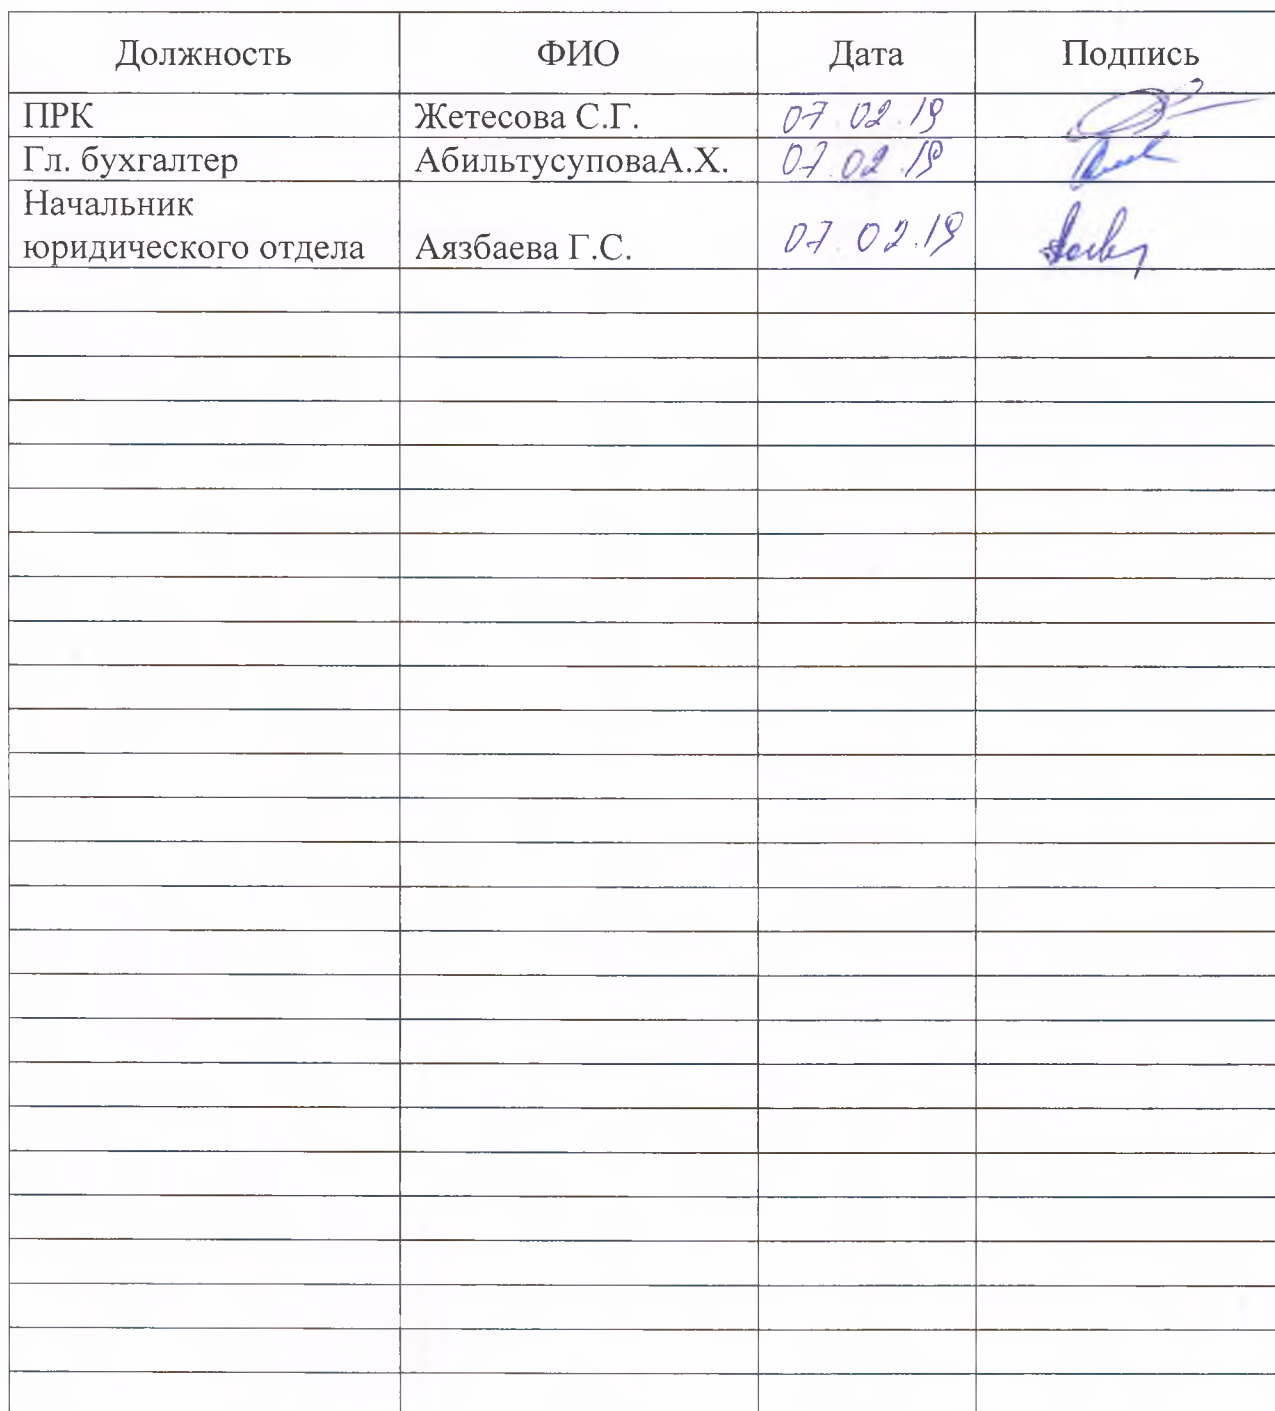 Должность ФИО Дата Подпись
ПРК Жетесова С.Г. 07.02.19
Гл. бухгалтер АбильтусуповаА.Х. 07.02.19
Начальник
юридического отдела Аязбаева Г.С. 07.02.19